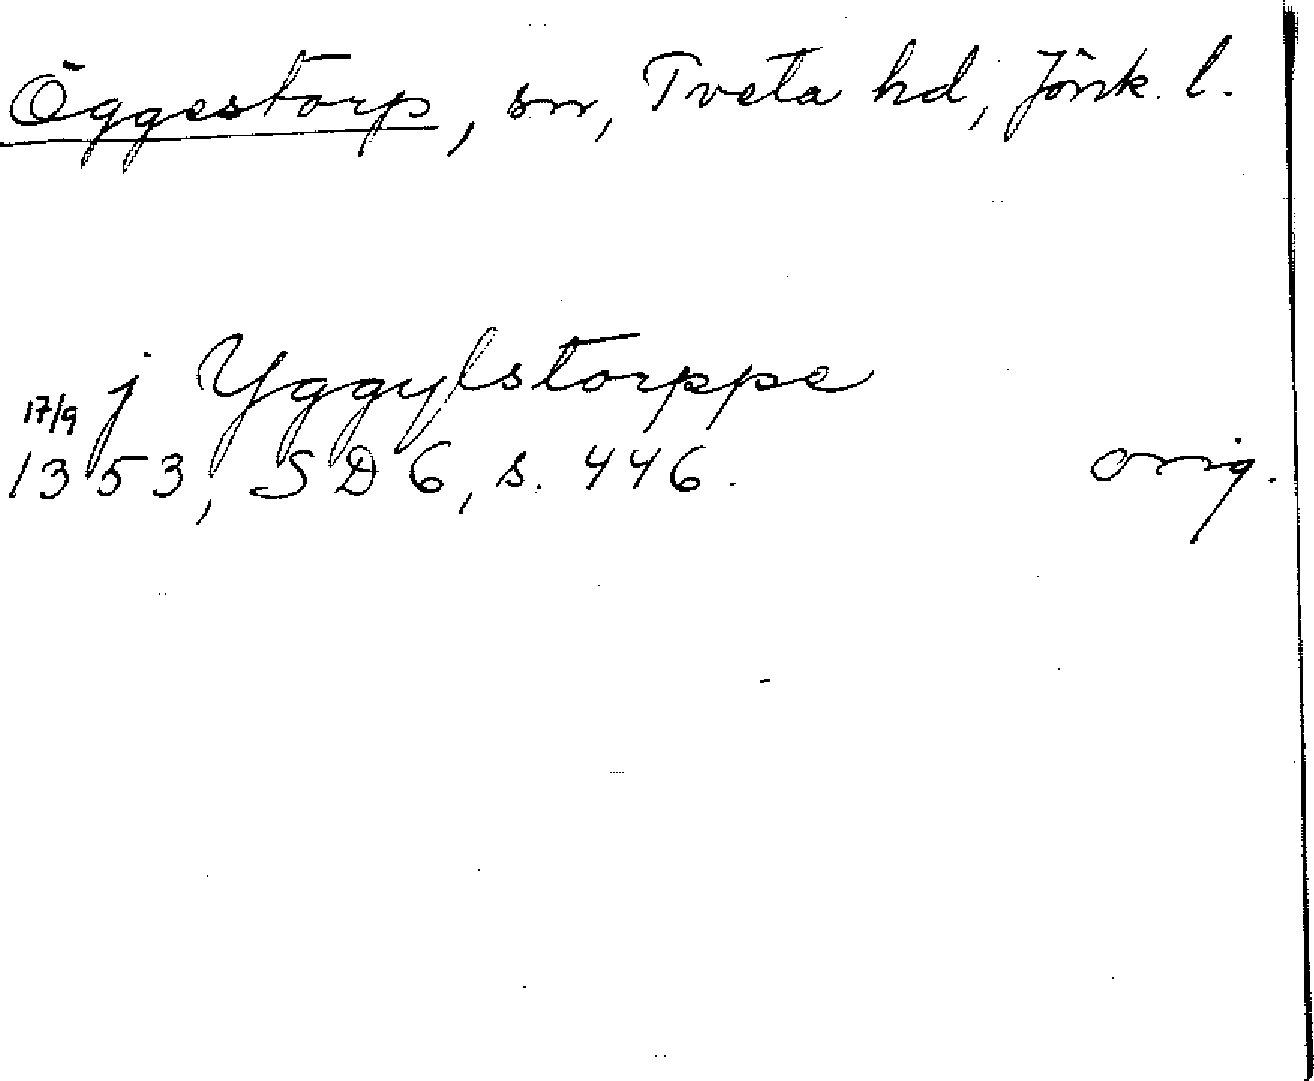 Öggestorp, sn, Tveta hd, Jönk. l.
j Yggylstorppe
17/9
1353, SD 6, s. 446. orig.